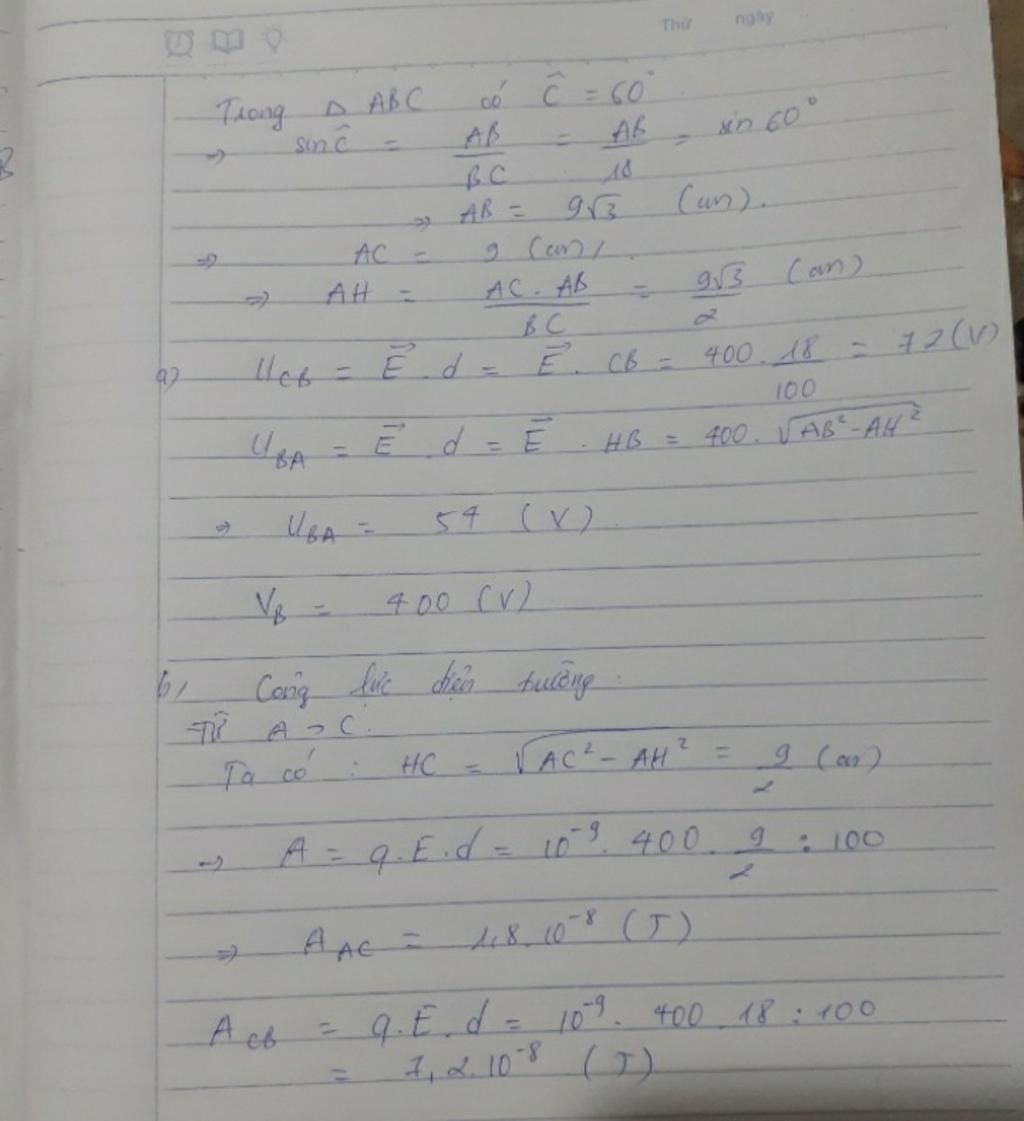 Thứ ngày
Trong △ ABC có Ĉ = 60°
⇒ sin Ĉ = AB/BC = AB/18 = sin 60°
⇒ AB = 9√3 (cm).
⇒ AC = 9 (cm).
⇒ AH = AC . AB/BC = 9√3/2 (cm)
a) U_CB = E⃗ . d = E⃗ . CB = 400 . 18/100 = 72 (V)
U_BA = E⃗ . d = E⃗ . HB = 400 . √(AB² - AH²)
⇒ U_BA = 54 (V)
V_B = 400 (V)
b, Công lực điện trường :
Từ A → C.
Ta có : HC = √(AC² - AH²) = 9/2 (cm)
⇒ A = q.E.d = 10⁻⁹ . 400 . 9/2 : 100
⇒ A_AC = 1,8.10⁻⁸ (J)
A_CB = q.E.d = 10⁻⁹ . 400 . 18 : 100
= 7,2.10⁻⁸ (J)